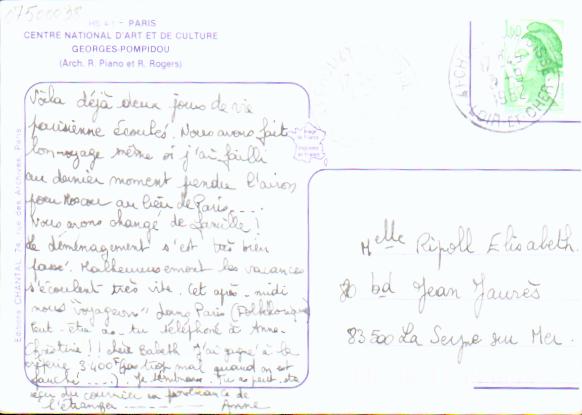 07500038
PARIS
CENTRE NATIONAL D'ART ET DE CULTURE
GEORGES-POMPIDOU
(Arch. R. Piano et R. Rogers)
1,60
1982
LOIR ET CHER
Editions CHANTAL, 74, rue des Archives, Paris
Voilà déjà deux jours de vie
parisienne écoulés. Nous avons fait
bon voyage même si j'ai failli
au dernier moment prendre l'avion
pour Moscou au lieu de Paris....
Nous avons changé de famille!
Le déménagement s'est très bien
passé. Malheureusement les vacances
s'écoulent très vite. Cet après-midi
nous "voyageons" dans Paris (Folklorique)
Peut-être as-tu téléphoné à Anne-
Christine!! chère Babeth J'ai gagné à la
3400F (pas trop mal quand on est
....) Je t'embrasse. Tu as peut-être
reçu du courrier en provenance de
l'étranger Anne
Melle Ripoll Elisabeth.
bd Jean Jaurès
83500 La Seyne sur Mer.